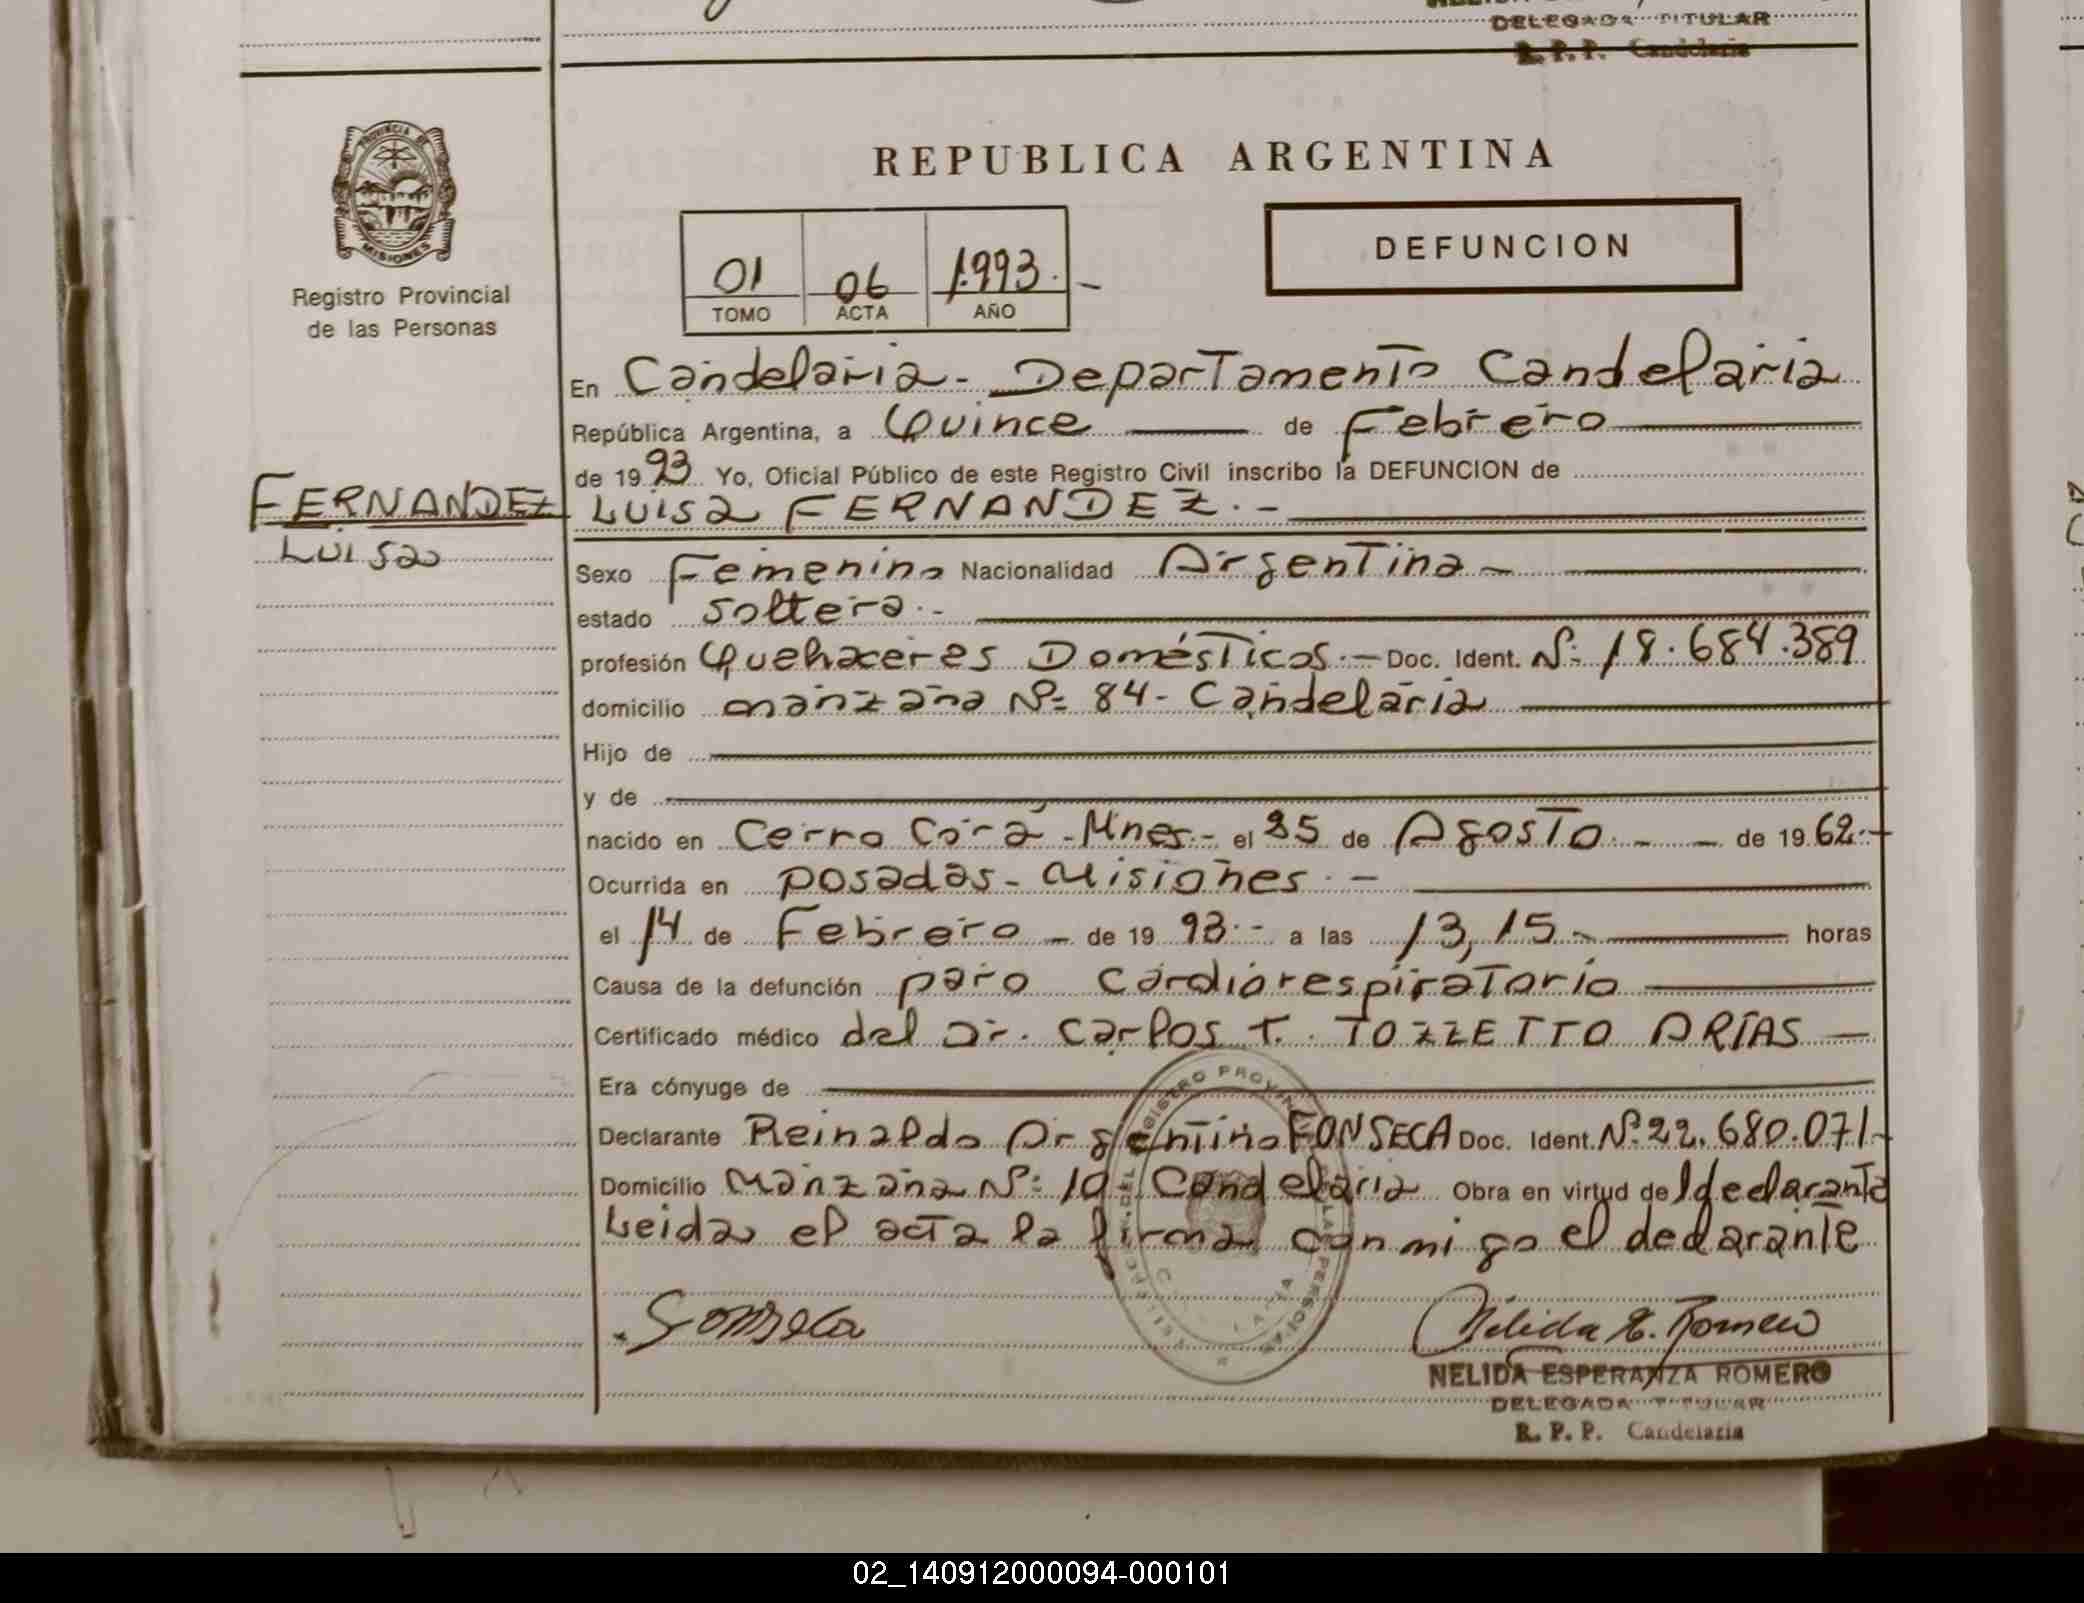 DELEGADA TITULAR
R. P. P. Candelaria
PROVINCIA DE
MISIONES
Registro Provincial
de las Personas
REPUBLICA ARGENTINA
01 06 1993.-
TOMO ACTA AÑO
DEFUNCION
En Candelaria - Departamento Candelaria
República Argentina, a Quince de Febrero
de 19 93 Yo, Oficial Público de este Registro Civil inscribo la DEFUNCION de
FERNANDEZ
Luisa
Luisa FERNANDEZ.-
Sexo Femenino Nacionalidad Argentina -
estado soltera.-
profesión Quehaceres Domésticos.- Doc. Ident. Nº 18.684.389
domicilio manzana Nº 84 - Candelaria
Hijo de
y de
nacido en Cerro Corá - Mnes.- el 25 de Agosto.- - de 19 62.-
Ocurrida en posadas - Misiones.-
el 14 de Febrero - de 19 93.- a las 13,15 - horas
Causa de la defunción paro cardiorespiratorio
Certificado médico del Dr. Carlos T. TOZZETTO ARIAS -
Era cónyuge de
Declarante Reinaldo Argentino FONSECA Doc. Ident. Nº 22.680.071-
Domicilio Manzana Nº 10 Candelaria Obra en virtud de l declarante
Leida el acta la firma con mi go el declarante
Fonseca
Nélida E. Romero
NELIDA ESPERANZA ROMERO
DELEGADA TITULAR
R. P. P. Candelaria
02_140912000094-000101